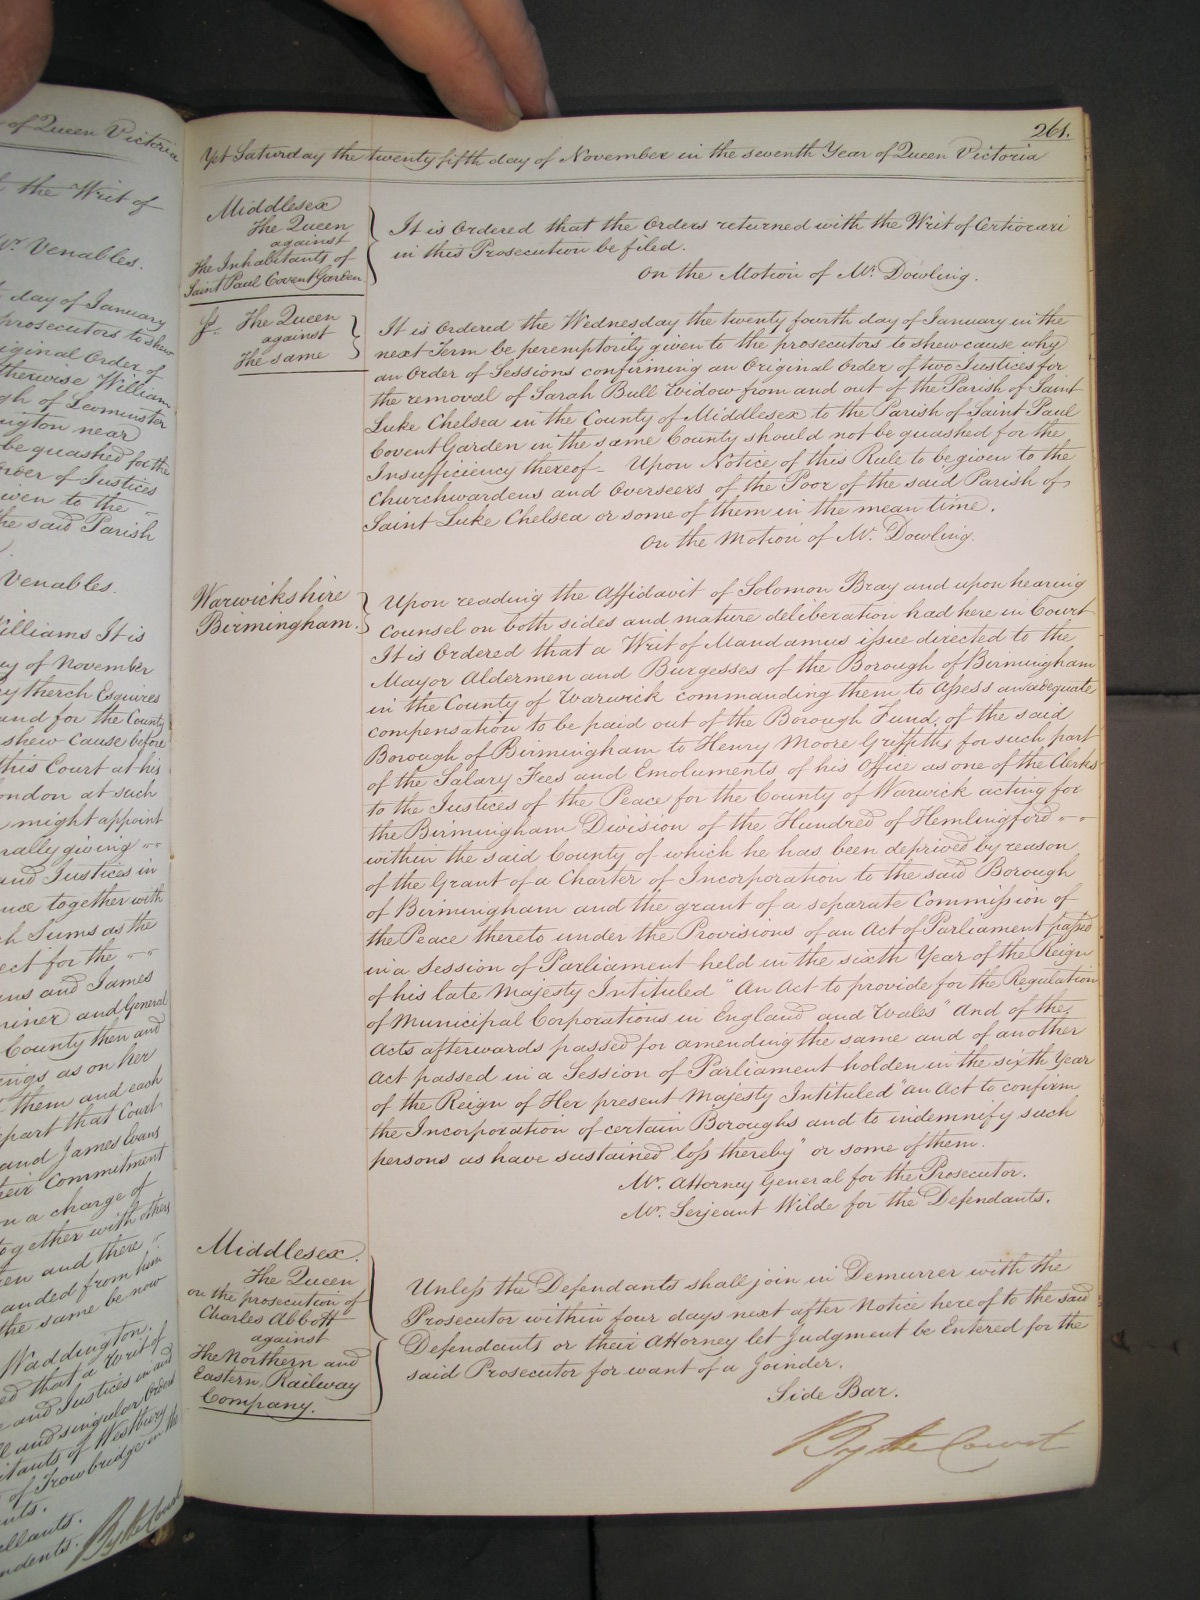 of Queen Victoria
the Writ of
Mr. Venables.
day of January
prosecutors to shew
Original Order of
otherwise William
of Leominster
near
be quashed for the
order of Justices
given to the
the said Parish
Venables.
Williams It is
of November
Esquires
and for the County
shew Cause before
this Court at his
London at such
might appoint
giving
and Justices in
together with
such Sums as the
for the
and James
and General
County then and
as on her
them and each
part that Court
and James Evans
their Commitment
on a charge of
together with others
and there
from him
the same be now
Waddington.
that a Writ of
and Justices in and
all and singular Orders
of Westbury
of Trowbridge in the
By the Court
261.
Yet Saturday the twenty fifth day of November in the seventh Year of Queen Victoria
Middlesex
The Queen
against
The Inhabitants of
Saint Paul Covent Garden
It is Ordered that the Orders returned with the Writ of Certiorari
in this Prosecution be filed.
On the Motion of Mr. Dowling.
The Queen
against
The same
It is Ordered the Wednesday the twenty fourth day of January in the
next Term be peremptorily given to the prosecutors to shew cause why
an Order of Sessions confirming an Original Order of two Justices for
the removal of Sarah Bull Widow from and out of the Parish of Saint
Luke Chelsea in the County of Middlesex to the Parish of Saint Paul
Covent Garden in the same County should not be quashed for the
Insufficiency thereof - Upon Notice of this Rule to be given to the
Churchwardens and Overseers of the Poor of the said Parish of
Saint Luke Chelsea or some of them in the mean time.
On the Motion of Mr. Dowling.
Warwickshire
Birmingham.
Upon reading the Affidavit of Solomon Bray and upon hearing
Counsel on both sides and mature deliberation had here in Court
It is Ordered that a Writ of Mandamus issue directed to the
Mayor Aldermen and Burgesses of the Borough of Birmingham
in the County of Warwick commanding them to Assess an adequate
compensation to be paid out of the Borough Fund of the said
Borough of Birmingham to Henry Moore Griffiths for such part
of the Salary Fees and Emoluments of his Office as one of the Clerks
to the Justices of the Peace for the County of Warwick acting for
the Birmingham Division of the Hundred of Hemlingford
within the said County of which he has been deprived by reason
of the Grant of a Charter of Incorporation to the said Borough
of Birmingham and the grant of a separate Commission of
the Peace thereto under the Provisions of an Act of Parliament passed
in a Session of Parliament held in the sixth Year of the Reign
of his late Majesty Intituled "An Act to provide for the Regulation
of Municipal Corporations in England and Wales" And of the
Acts afterwards passed for amending the same and of another
Act passed in a Session of Parliament holden in the sixth Year
of the Reign of Her present Majesty Intituled "an Act to confirm
the Incorporation of certain Boroughs and to indemnify such
persons as have sustained loss thereby" or some of them.
Mr. Attorney General for the Prosecutor.
Mr. Serjeant Wilde for the Defendants.
Middlesex.
The Queen
on the prosecution of
Charles Abbott
against
The Northern and
Eastern Railway
Company.
Unless the Defendants shall join in Demurrer with the
Prosecutor within four days next after Notice hereof to the said
Defendants or their Attorney let Judgment be Entered for the
said Prosecutor for want of a Joinder.
Side Bar.
By the Court